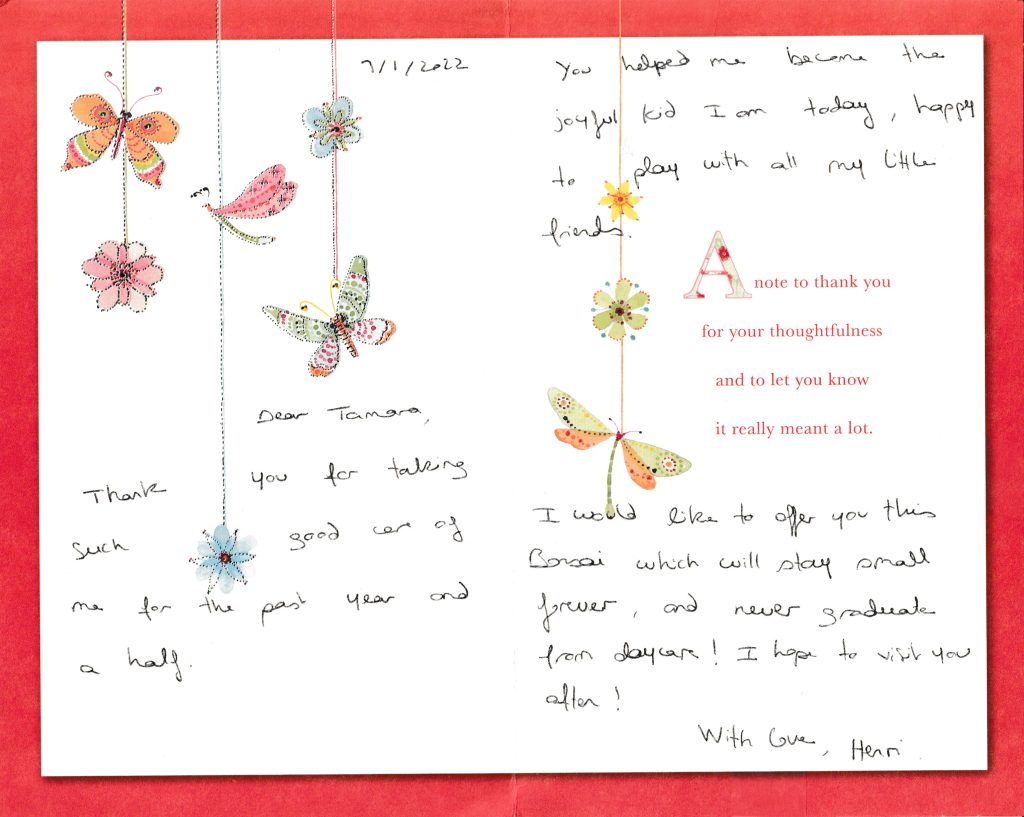 7/1/2022
Dear Tamara,
Thank you for taking
such good care of
me for the past year and
a half.
You helped me become the
joyful kid I am today, happy
to play with all my little
friends.
A
note to thank you
for your thoughtfulness
and to let you know
it really meant a lot.
I would like to offer you this
Bonsai which will stay small
forever, and never graduate
from daycare! I hope to visit you
after!
With love, Henri